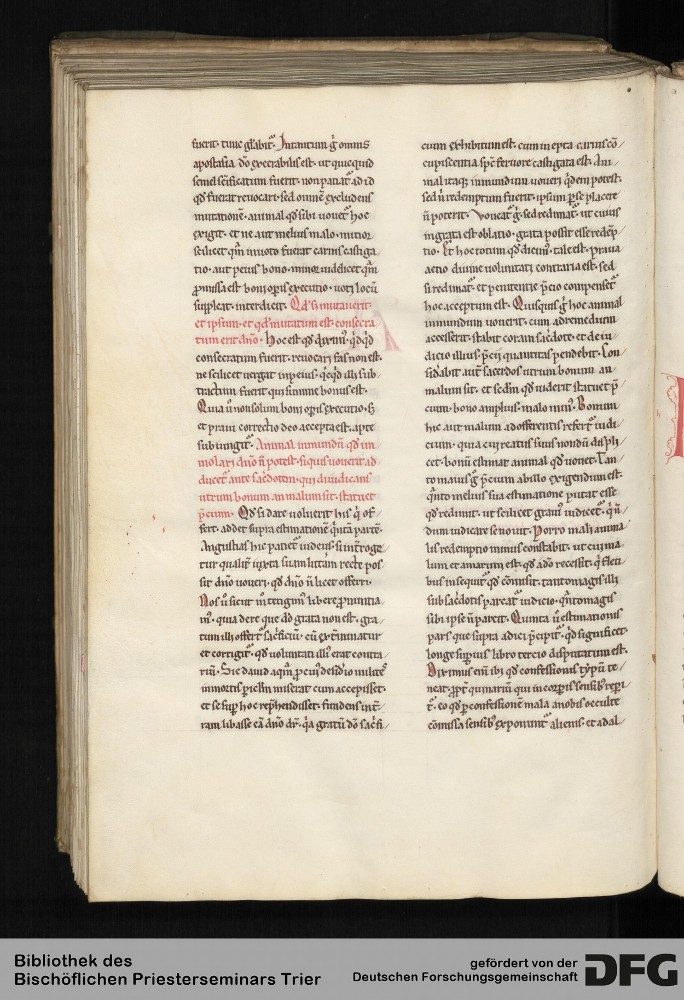 fuerit. tunc grabit᷑. Intantum g̊ omnis
apostasia do execrabilis est. ut quicquid
semel scificatum fuerit. non patiat᷑ ad id
qd fuerat reuocari. sed omnē excludens
mutationē. animal qd sibi uouet᷑ hoc
exigit. et ne aut melius malo. mitior
scilicet qm inuoto fuerat carnis castiga
tio. aut peius bono. minor uidelicet qm
ꝓmissa est boni opis executio. uoti locū
suppleat. interdicit. Qd si mutauerit.
et ipsum. et qd mutatum est. consecra
tum erit dn̄o. Hoc est qd dixim᷒. qdqd
consecratum fuerit. reuocari fas non est.
ne scilicet uergat in peius. qcqd illi sub
tractum fuerit qui summe bonus est.
Quia ū non solum boni opis executio. s;
et praui correctio deo accepta est. apte
subiungit᷑. Animal inmundū qd im
molari dn̄o n̄ potest. siquis uouerit ad
ducet᷑ ante sacdotem. qui diiudicans
utrum bonum an malum sit. statuet
p̄cium. Qd si dare uoluerit his q̇ of
fert. addet supra estimationē quintā partē.
Angustias hic patiet᷑ iudeus. si int̄roge
tur qualit̄ iuxta suam litt̄am recte pos
sit dn̄o uoueri. qd dn̄o n̄ licet offerri.
Nos ū sicut integim᷒ libere ꝓnuntia
m᷒. quia dexť que dō grata non est. gra
tum illi offert᷑ sac̄ficiū. cū ext̄minatur
et corrigit᷑. qd uoluntati illi᷒ erat contra
riū. Sic dauid aqm̄ ꝓ cui᷒ desidio milites
in mortis piclm̄ miserat cum accepisset.
et se sup hoc rep̄hendisset. fundens in t̄
ram libasse eā dn̄o dr̄. qa gratū dō sacfi
cium exhibitum est. cum inepta carnis cō
cupiscentia sp̄c feruore castigata est. Ani
mal itaq; inmundum uoueri qdem potest.
sed n̄ redemptum fuerit. ipsum p se placere
n̄ poterit. Voueat᷑ g̊. sed redimat᷑. ut cuius
ingrata est oblatio. grata possit esse redēp
tio. Et hoc totum qd diem᷒. tale est. praua
actio diuine uoluntati contraria est. sed
si redimat᷑. et penitentie p̄cio compenset᷑
hoc acceptum est. Quisquis g̊ hoc animal
inmundum uouerit. cum ad remedium
accesserit. stabit coram sacdote. et de iu
dicio illius. p̄cii quantitas pendebit. Con
sid̄abit aut̄ sacerdos utrum bonum an
malum sit. et scdm qd uiderit statuet p̄
cium. bono amplius. malo min᷒. Bonum
hic aut malum ad offerentis refert᷑ iudi
cium. quia cui reatus suus nondū displi
cet. bonū estimat animal qd uouet. Tan
to maius g̊ p̄cium ab illo exigendum est.
qnto melius sua estimatione putat esse
qd redimit. ut scilicet graui᷒ iudicet᷑. q̇ n̄
dum iudicare se nouit. Porro mali anima
lis redemptio minus constabit. ut cui ma
lum et amarum est. qd a dō recessit. q̇ fleti
bus insequit᷑ qd cōmisit. tanto magis illi
sub sacdotis pareat᷑ iudicio. qnto magis
sibi ipse n̄ parcit. Quinta ū estimationis
pars que supra adici p̄cipit᷑. qd significet.
longe superius libro tercio disputatum est.
Diximus enī ibi qd confessionis typū te
neat. ꝓpt̄ quinariū qui in corpis sensib᷒ repi
t᷑. eo qd p confessionē mala a nobis occulte
cōmissa sensib᷒ exponunt᷑ alienis. et ad al
Bibliothek des
Bischöflichen Priesterseminars Trier
gefördert von der
Deutschen Forschungsgemeinschaft
DFG